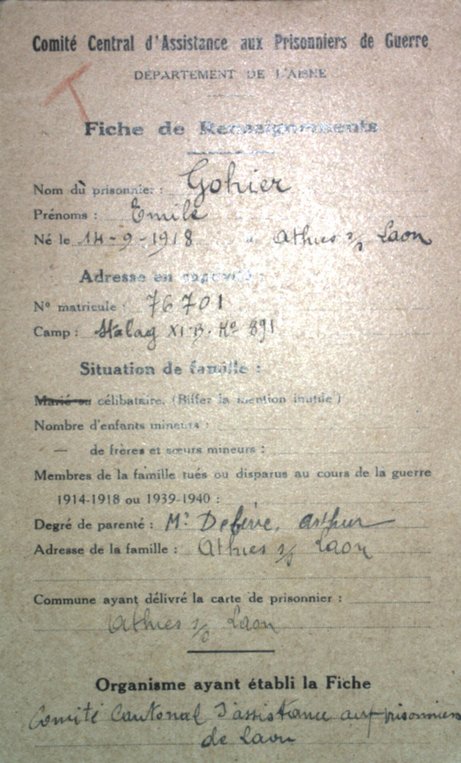 Comité Central d'Assistance aux Prisonniers de Guerre
DÉPARTEMENT DE L'AISNE
T
Fiche de Renseignements
Nom du prisonnier : Gohier
Prénoms : Emile
Né le 14-9-1918 à Athies s/s Laon
Adresse en captivité
N° matricule : 76701
Camp : Stalag XI B. Ko 891
Situation de famille :
Marié ou célibataire. (Biffer la mention inutile)
Nombre d'enfants mineurs :
— de frères et sœurs mineurs :
Membres de la famille tués ou disparus au cours de la guerre
1914-1918 ou 1939-1940 :
Degré de parenté : Mr arthur
Adresse de la famille : Athies s/s Laon
Commune ayant délivré la carte de prisonnier :
Athies s/s Laon
Organisme ayant établi la Fiche
Comité Cantonal d'assistance aux prisonniers
de Laon